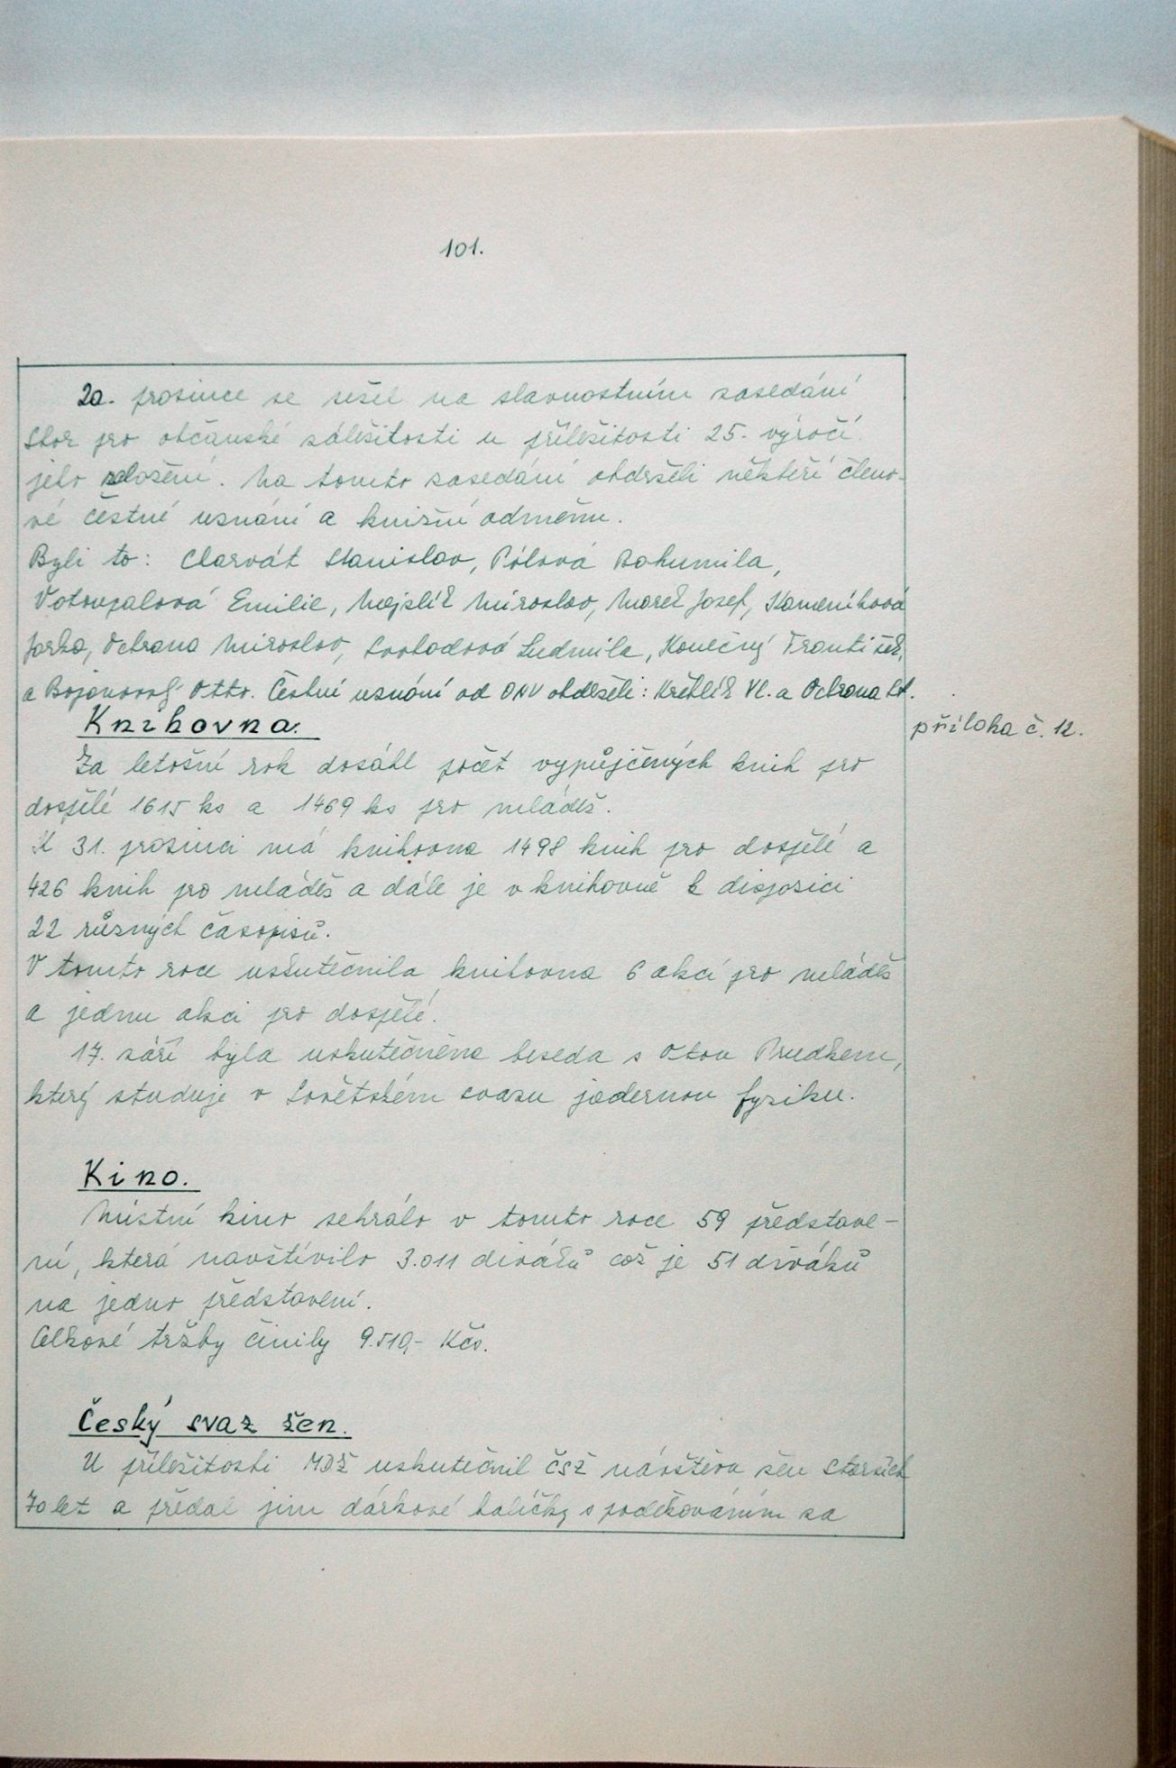 101.
20. prosince se sešel na slavnostním zasedání
sbor pro občanské záležitosti u příležitosti 25. výročí
jeho založení. Na tomto zasedání obdrželi někteří členo-
vé čestné uznání a knižní odměnu.
Byli to: Charvát Stanislav, Pólová Bohumila,
Votoupalová Emilie, Mejzlík Miroslav, Marek Josef, Kameníková
Jarka, Ochrana Miroslav, Svobodová Ludmila, Konečný František,
a Bojanovský Otto. Čestní uznání od ONV obdrželi: Vl. a Ochrana St.
příloha č. 12.
Knihovna.
Za letošní rok dosáhl počet vypůjčených knih pro
dospělé 1615 ks a 1469 ks pro mládež.
K 31. prosinci má knihovna 1498 knih pro dospělé a
426 knih pro mládež a dále je v knihovně k disposici
22 různých časopisů.
V tomto roce uskutečnila knihovna 6 akcí pro mládež
a jednu akci pro dospělé.
17. září byla uskutečněna beseda s Otou
který studuje v Sovětském svazu jadernou fyziku.
Kino.
Místní kino sehrálo v tomto roce 59 představe-
ní, která navštívilo 3.011 diváků což je 51 diváků
na jedno představení.
Celkové tržby činily 9.510,- Kčs.
Český svaz žen.
U příležitosti MDŽ uskutečnil ČSŽ návštěvu žen starších
70 let a předal jim dárkové balíčky s poděkováním za